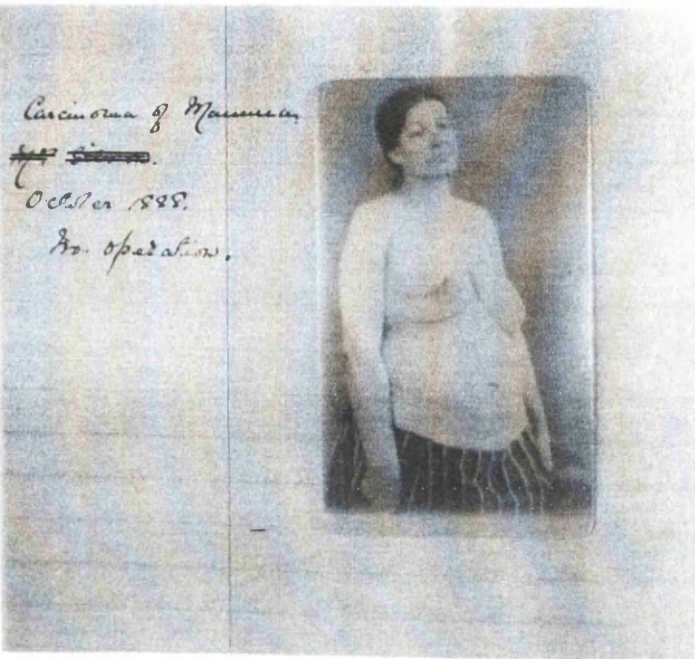 Carcinoma of Mamma
October 1888.
No operation.